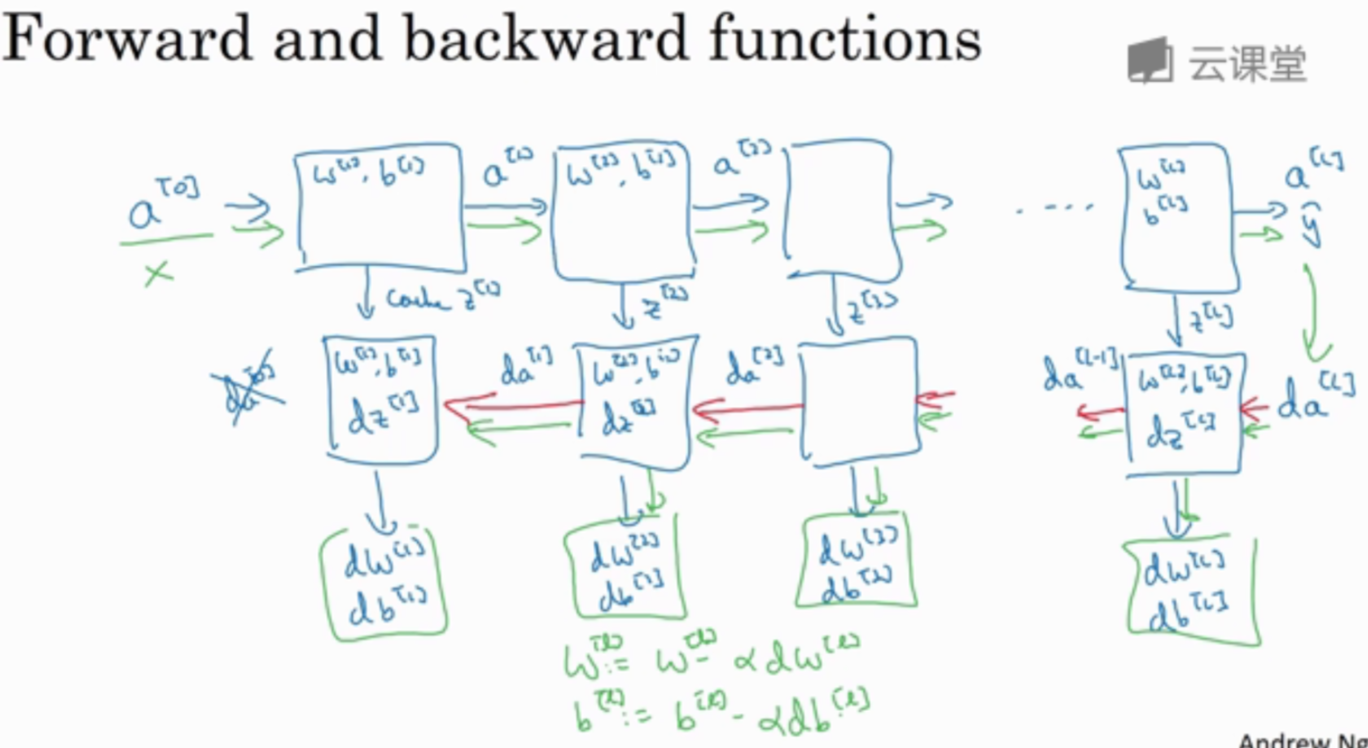 Forward and backward functions
云课堂
a^[0]
x
w^[1], b^[1]
a^[1]
w^[2], b^[2]
a^[2]
....
w^[L]
b^[L]
a^[L]
ŷ
cache z^[1]
z^[2]
z^[3]
z^[L]
da^[0]
w^[1], b^[1]
dz^[1]
da^[1]
w^[2], b^[2]
dz^[2]
da^[2]
da^[L-1]
w^[L], b^[L]
dz^[L]
da^[L]
dw^[1]
db^[1]
dw^[2]
db^[2]
dw^[3]
db^[3]
dw^[L]
db^[L]
w^[l] := w^[l] - αdw^[l]
b^[l] := b^[l] - αdb^[l]
Andrew Ng